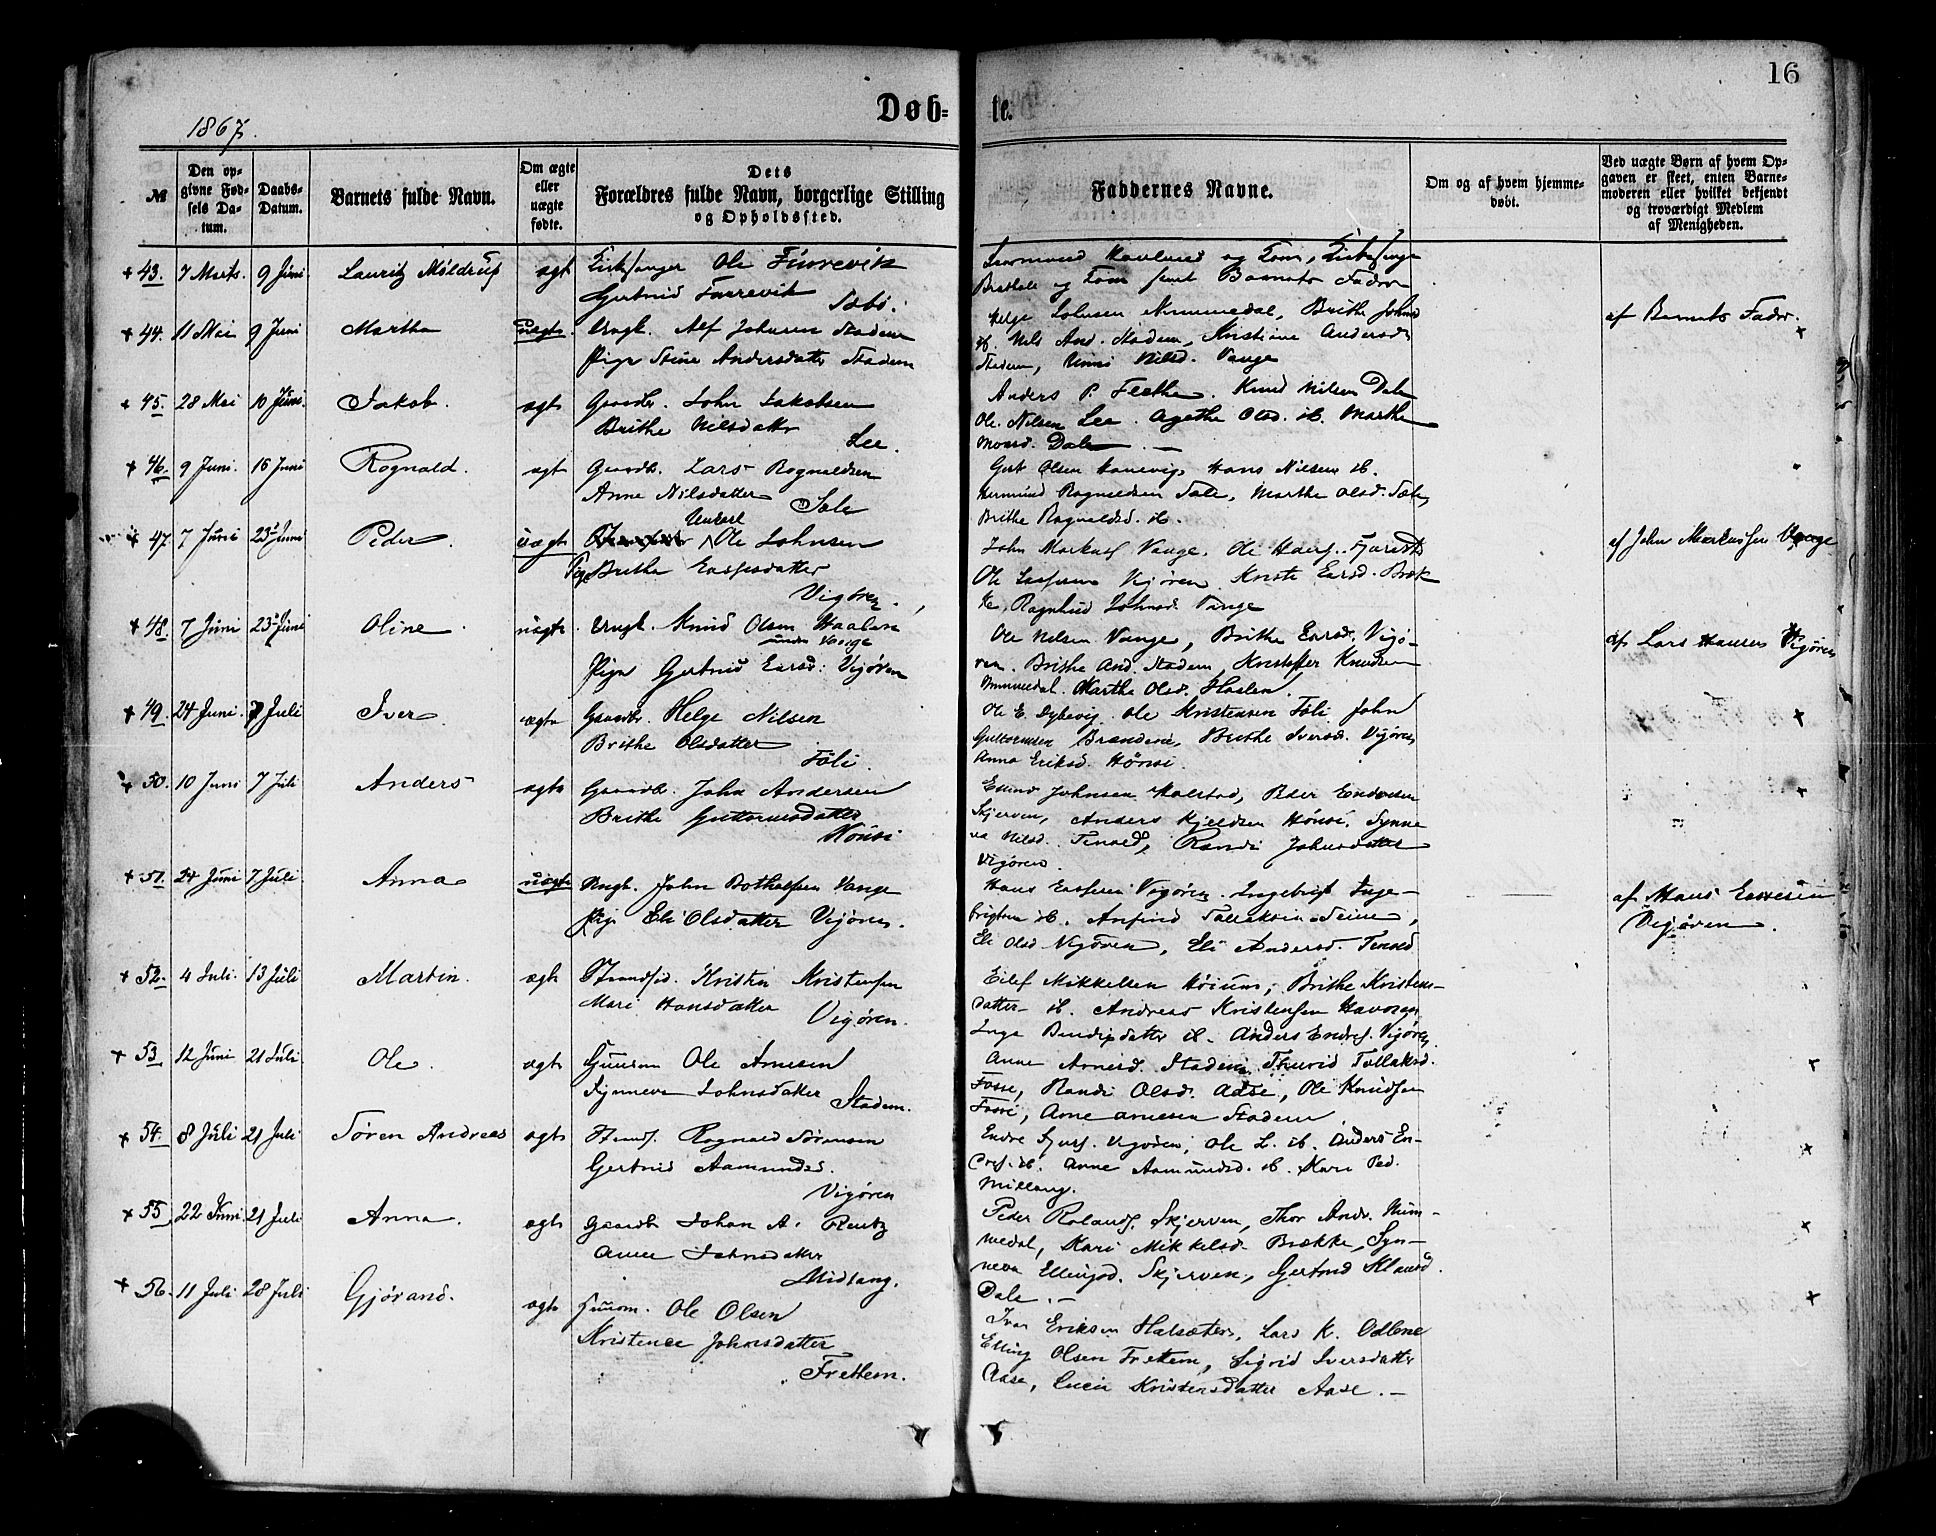 16
1867.
Døb=
te.
№
Den op-
givne Fød-
sels Da-
tum.
Daabs-
Datum.
Barnets fulde Navn.
Om ægte
eller
uægte
fødte.
Dets
Forældres fulde Navn, borgerlige Stilling
og Opholdssted.
Faddernes Navne.
Om og af hvem hjemme-
døbt.
Ved uægte Børn af hvem Op-
gaven er skeet, enten Barne-
moderen eller hvilket bekjendt
og troværdigt Medlem
af Menigheden.
+ 43. 7 Marts. 9 Juni. Lauritz Møldrup ægt Kirkesanger Ole Furrevik
Gertrud Furrevik
og Kone, Kirkesanger
og Kone samt Barnets Fader
+ 44. 11 Mai 9 Juni Martha uægte. Ungk. Alf Johnsen Stadem
Pige Stine Andersdatter Stadem
Helge Johnsen Nummedal, Brithe Johnsd
ib. Nils And. Stadem, Kristiane Andersd
Stadem, Unni Nilsd. Vange
af Barnets Fader.
+ 45. 28 Mai 10 Juni. Jakob. ægte Gaardbr. John Jakobsen
Brithe Nilsdatter
Lee.
Anders P. Flethe. Knud Nilsen Dale
Ole Nilsen Lee. Agathe Olsd. ib. Marthe
Monsd. Dale. —
+ 46. 9 Juni. 16 Juni Rognald. ægt Gaardb. Lars Rognaldsen
Anne Nilsdatter
Sale
Gert Olsen Hanevig, Hans Nilsen ib.
Hermund Rognaldsen Sale, Marthe Olsd. Sale,
Brithe Rognaldsd. ib.
47. 7 Juni 23 Juni Peder. uægt Ungkarl Ole Johnsen
Pige Brithe Lassesdatter
Vigøren.
John Markusf Vange, Ole
Ole Lassesen Vigøren, Kristi Larsd. Bræk
ke, Ragnhild Johnsd. Vange
af John Markussen Vange
+ 48. 7 Juni 23 Juni Oline. uægte Ungk. Knud Olsen Haalen
under Vange
Pige Gertrud Larsd: Vigøren
Ole Nilsen Vange, Brithe Larsd. Vigø-
ren. Brithe And. Stadem, Kristoffer Knudsen
Nummedal. Martha Olsd. Haalen.
af Lars Hansen Vigøren
+ 49. 24 Juni. 7 Juli Iver. ægte Gaardbr. Helge Nilsen
Brithe Olsdatter
Føli.
Ole E. Dybevig. Ole Kristensen Føli John
Guttormsen Brændene, Brithe Iversd. Vigøren,
Anna Eriksd. Hønsi.
+ 50. 10 Juni 7 Juli Anders ægte Gaardb. John Andersen
Brithe Guttormsdatter
Hønsi
Johnsen Halstad, Peder Endresen
Skjerven, Anders Kjeldsen Hønsi, Synne
va Nilsd. Tensed, Randi Johnsdatter
Vigøren.
+ 51. 24 Juni 7 Juli. Anna uægte Ungk. John Bothulfsen Vange
Pige Eli Olsdatter Vigøren.
Hans Lassesen Vigøren. Ingebrigt Inge-
brigtsen ib. Anfind Tollaksen Seim,
Eli Olsd Vigøren, Eli Andersd. Tensed
af Hans Lassesen
Vigøren.
+ 52. 4 Juli. 13 Juli Martin. ægte Strandsid. Kristen Kristensen
Mari Hansdatter
Vigøren.
Eilef Mikkelsen Høium, Brithe Kristens-
datter ib. Andreas Kristensen
Inga Bendixdatter ib. Anders Endref. Vigøren,
+ 53 12 Juni 21 Juli. Ole. ægte Huusm Ole Arnesen
Synneva Johnsdatter
Stadem.
Anne Arnesd. Stadem, Thurid Tollaksd.
Fosse, Randi Olsd. Aase, Ole Knudsen
Fosse, Arne Arnesen Stadem
+ 54. 8 Juli 21 Juli Søren Andreas ægte Strandf. Rognald Sørensen
Gertrud Aamundsd.
Vigøren
Endre Sjurs. Vigøren, Ole L. ib. Anders En-
dres. ib. Anne Aamundsd. ib. Kari Ped.
Midlang.
+ 55. 22 Juni 21 Juli Anna. ægte Gaardb Johan A. Rentz
Anne Johnsdatter
Midlang.
Peder Rolandf. Skjerven, Thor Andr. Num-
medal, Kari Mikkelsd. Brække, Syn-
neva Ellingsd. Skjerven, Gertrud Klausd.
Dale. —
+ 56. 11 Juli 28 Juli Gjørand. ægte Huusm. Ole Olsen
Kristense Johnsdatter
Frettem.
Iver Eriksen Halsæter, Lars K. Odlene
Elling Olsen Frettem, Sigrid Iversdatter
Aase, Lucie Kristensdatter Aase. —